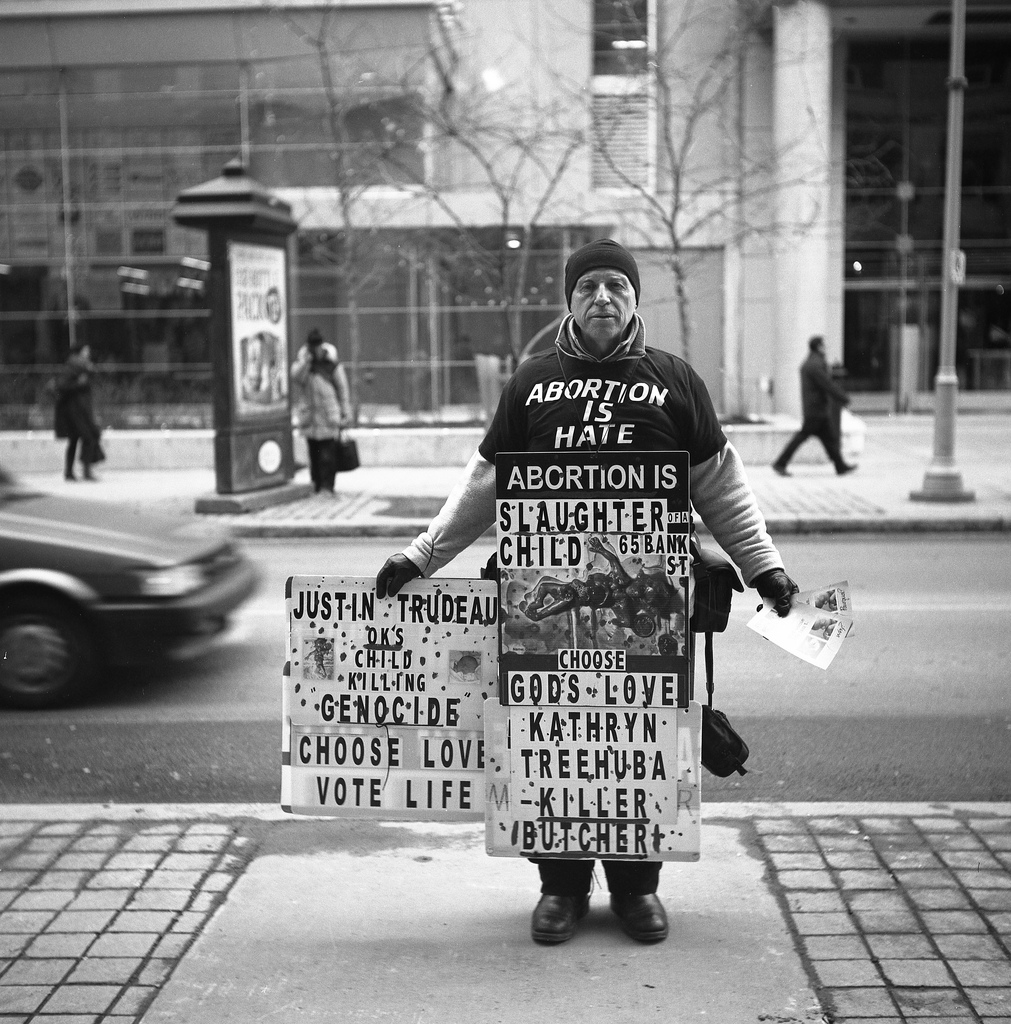 ABORTION
IS
HATE
ABORTION IS
SLAUGHTER OF A
CHILD 65 BANK
ST
CHOOSE
GODS LOVE
KATHRYN
TREEHUBA
-KILLER
BUTCHER
JUSTIN TRUDEAU
OK'S
CHILD
KILLING
"GENOCIDE"
CHOOSE LOVE
VOTE LIFE